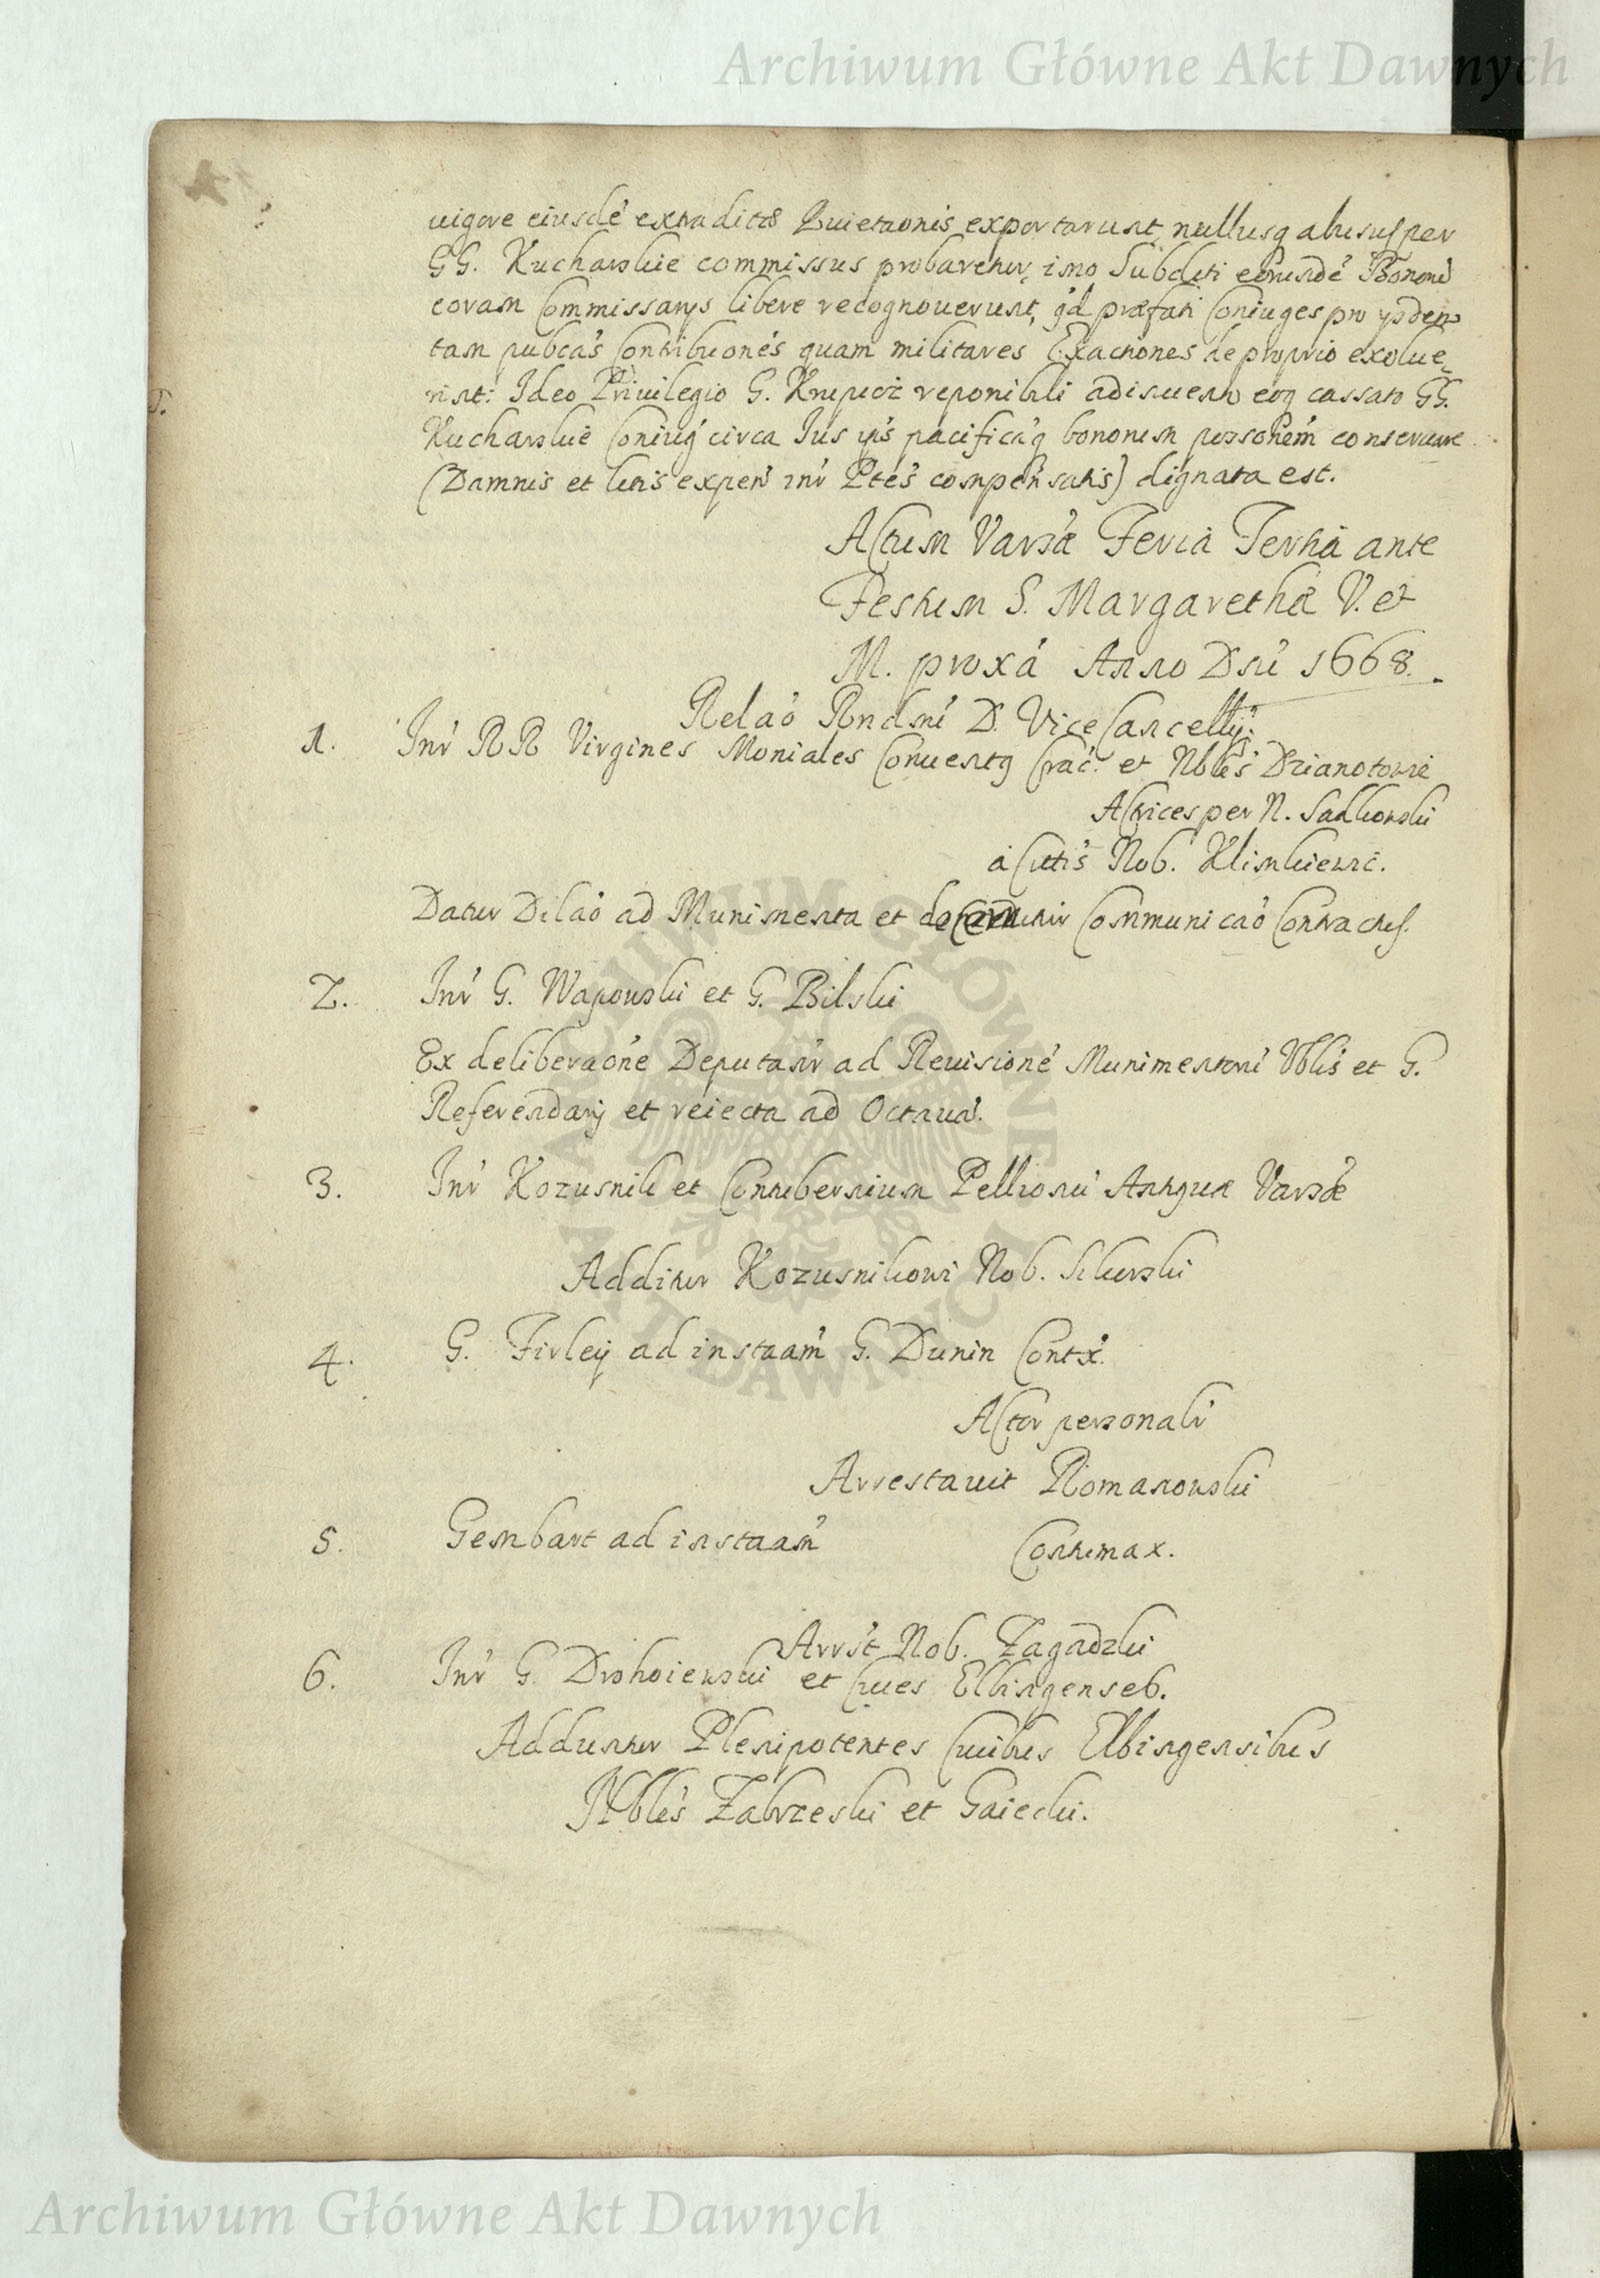 Archiwum Główne Akt Dawnych
uigore eiusdē extraditæ Quietaonis exportarunt, nullusq abusus per
GG. Kucharskie commissus probaretur, imo Subditi eorundē Bonorū
coram Commissarijs libere recognouerunt, qd præfati Coniuges pro ysdem
tam pubcas Contribuones quam militares Exactiones de proprio exolue,
rint: Ideo Priuilegio G. reponibili adinuento eoq cassato GG.
Kucharskie Coniug circa Jus ips pacificāq bonorum possonem conseruare
(Damnis et litis expen inr Ptes compensatis) dignata est.
Actum Varsæ Feria Tertia ante
Festum S. Margarethæ V. et
M. proxa Anno Dni 1668.
Relaō Rndmi D. Vice Cancellij.
1. Inr RR Virgines Moniales Conuentq Crac. et Nbles Dzianotowie
Actrices per N. Sadkowski
a Cittis Nob. Klimkiewic.
Datur Dilaō ad Munimenta et Communicaō Contractus.
2. Inr G. Wapowski et G. Bilski
Ex deliberaone Deputanr ad Reuisionē Munimentorū Nbles et G.
Referendarij et reiecta ad Octauā.
3. Inr Kozusnik et Contubernium Pellionū Antiquæ Varsæ
Additur Kozusnikowi Nob. Sikorski
4. G. Firleij ad instaam G. Dunin Contx.
Actor personalr
Arrestauit Romanowski
5. Gembart ad instaam Contumax.
Arrst Nob. Zagadzki
6. Inr G. Drohoiewski et Ciues Elbingenses.
Adduntur Plenipotentes Ciuibus Elbingensibus
Nbles Zabrzeski et Gaiecki.
ARCHIWUM GŁÓWNE AKT DAWNYCH
Archiwum Główne Akt Dawnych